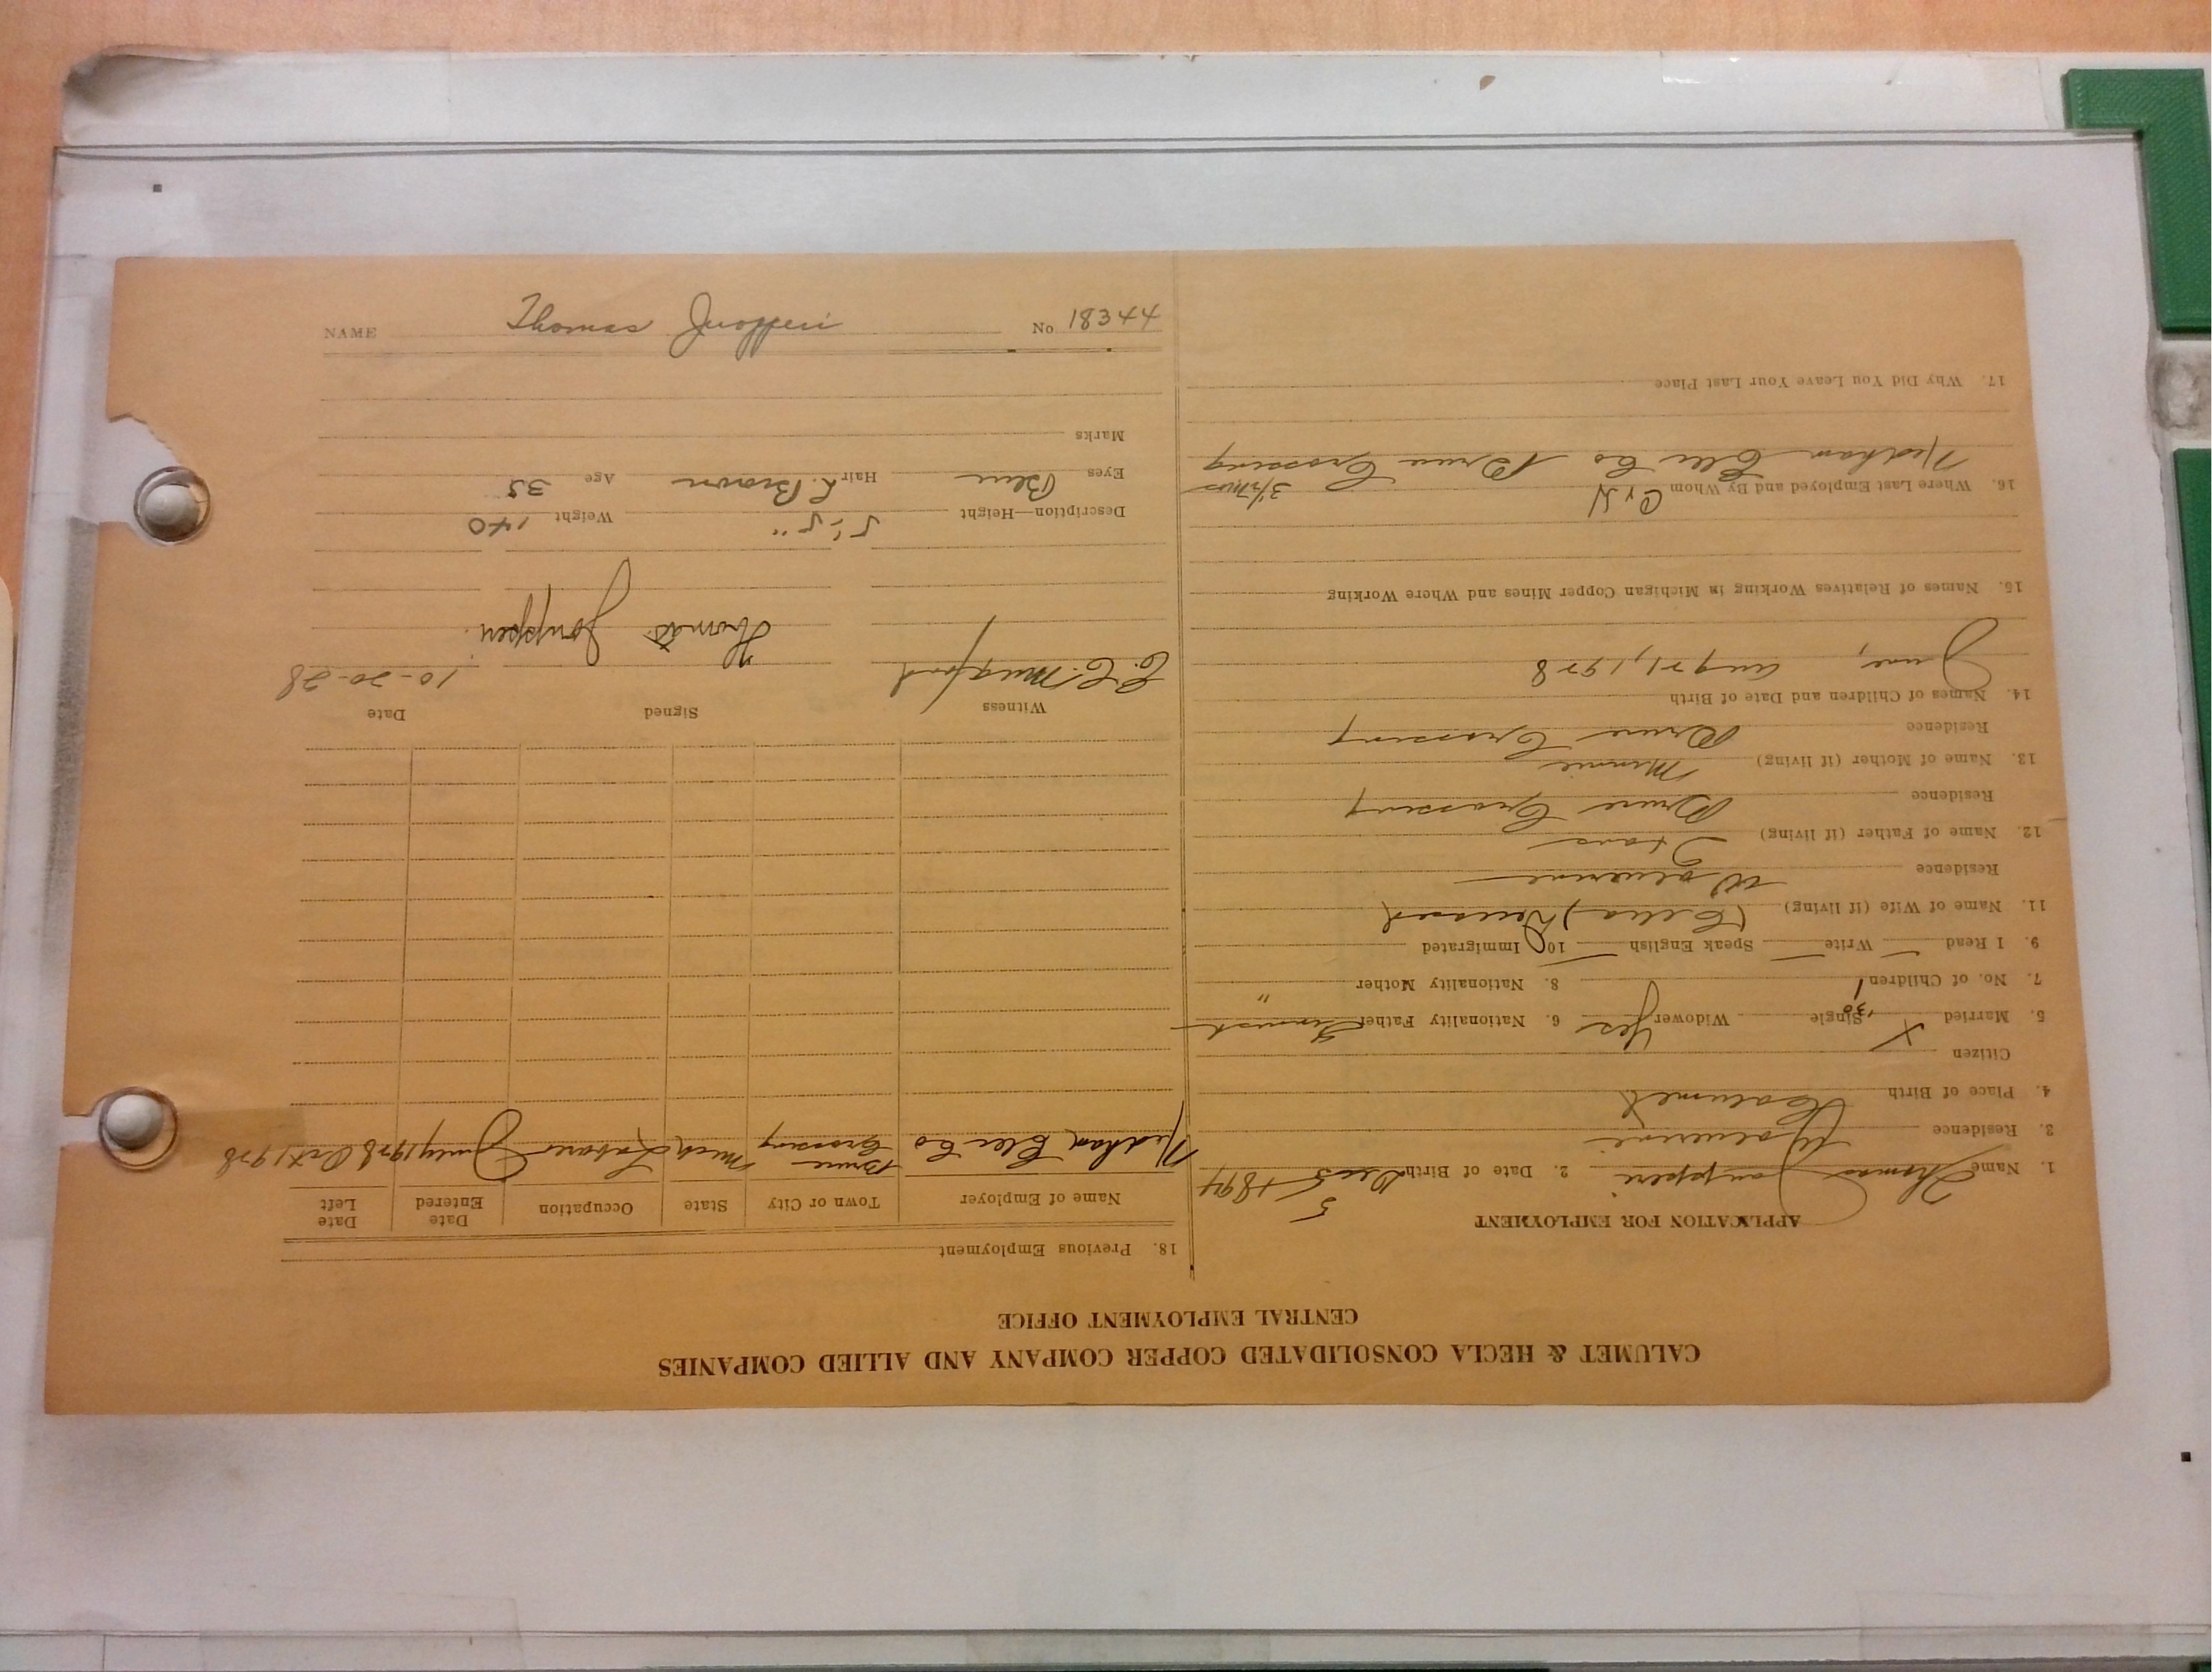 CALUMET & HECLA CONSOLIDATED COPPER COMPANY AND ALLIED COMPANIES
CENTRAL EMPLOYMENT OFFICE
APPLICATION FOR EMPLOYMENT
1. Name Thomas Jouppi 2. Date of Birth Dec 5 1894
5
3. Residence Wolverine
4. Place of Birth Calumet
Citizen
5. Married X '30 Single Widower Yes 6. Nationality Father Finnish
7. No. of Children 1 8. Nationality Mother "
9. I Read Write Speak English 10 Immigrated
11. Name of Wife (if living) (Ella) Deceased
Residence Wolverine
12. Name of Father (if living)
Residence Bruce Crossing
13. Name of Mother (if living) Minnie
Residence Bruce Crossing
14. Names of Children and Date of Birth
June, Aug 21, 1928
15. Names of Relatives Working in Michigan Copper Mines and Where Working
16. Where Last Employed and By Whom 3 1/2 mos
Nedham Elec Co Bruce Crossing
17. Why Did You Leave Your Last Place
18. Previous Employment
Name of Employer Town or City State Occupation Date Entered Date Left
Nedham Elec Co Bruce Crossing Mich Laborer July 1928 Oct 1928
Witness Signed Date
Thomas 10-20-28
Description—Height 5'-5" Weight 140
Eyes Blue Hair L. Brown Age 35
Marks
NAME Thomas No 18344